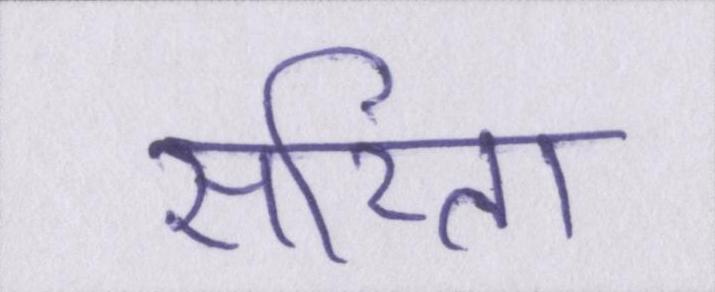 सरिता